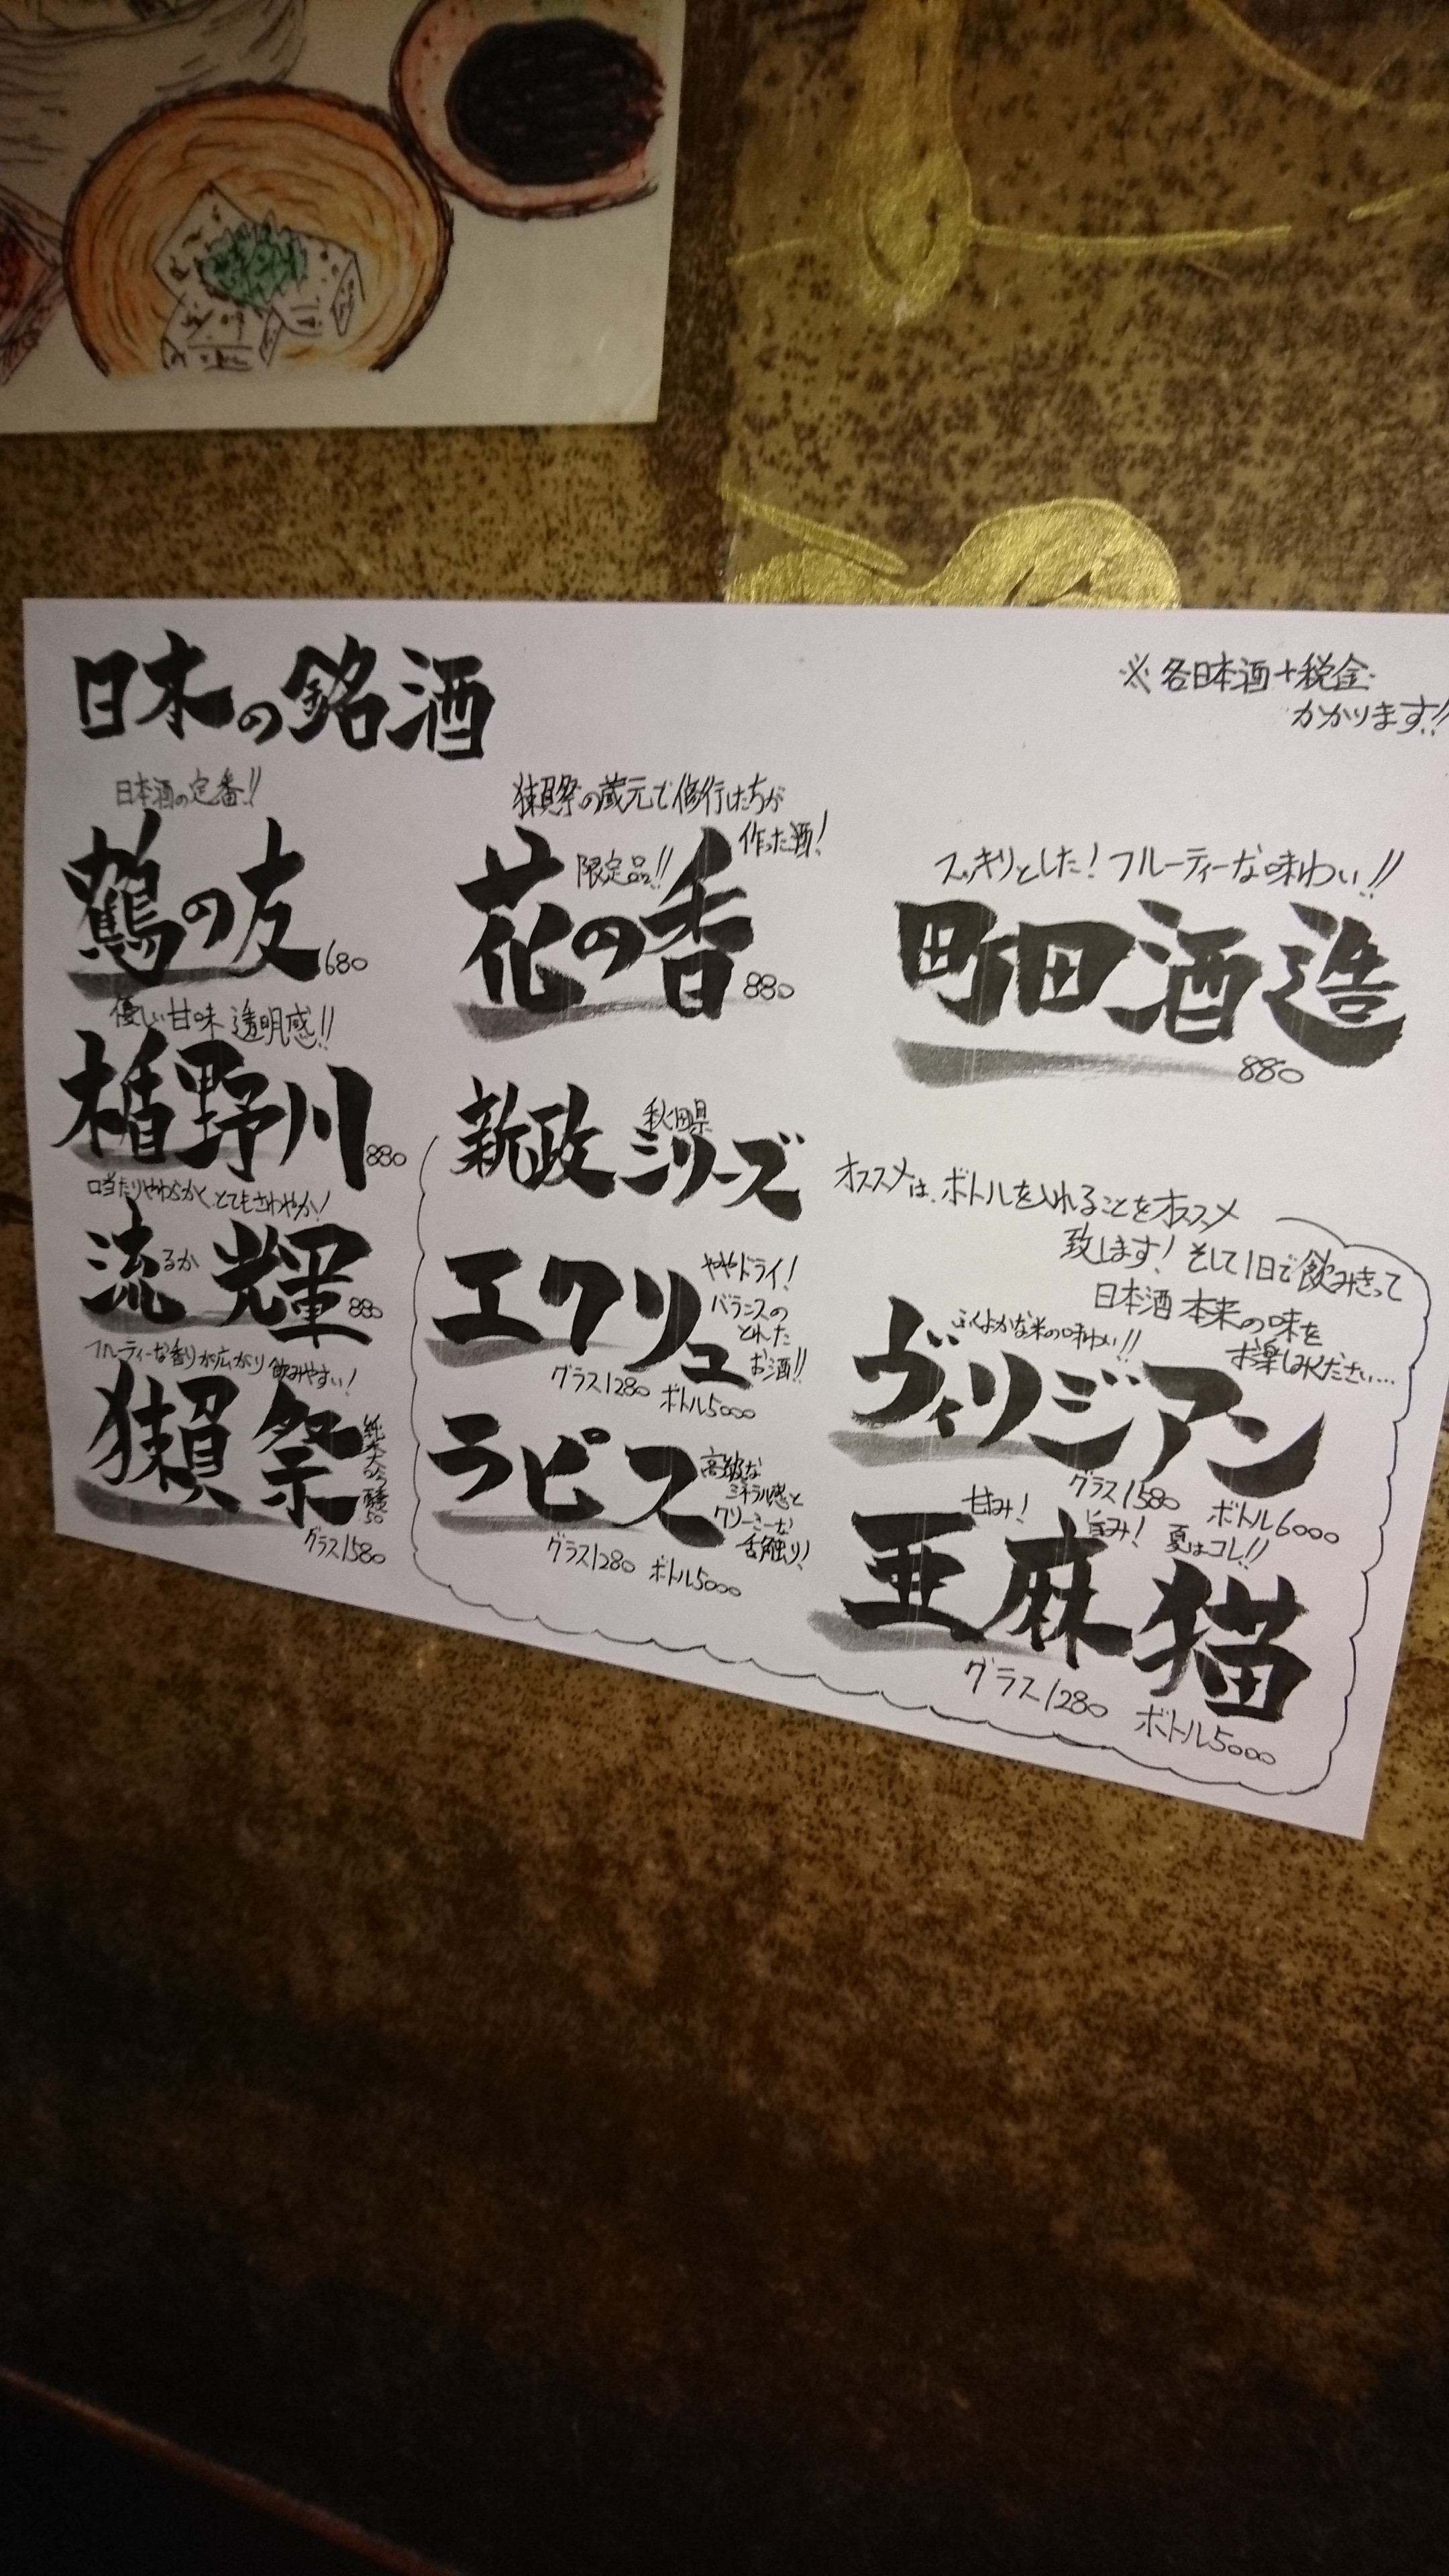 日本の銘酒
※各日本酒+税金
かかります!!
日本酒の定番!!
鶴の友 680
優しい甘味 透明感!!
楯野川 880
口当たりやわらかく、とてもさわやか!
流輝 るか 880
フルーティーな香りが広がり飲みやすい!
獺祭 純米大吟醸50
グラス1580
獺祭の蔵元で修行したちが
作った酒!
限定品!!
花の香 880
スッキリとした!フルーティーな味わい!!
町田酒造
880
新政 秋田県 シリーズ
オススメは、ボトルを入れることをオススメ
致します!そして1日で飲みきって
日本酒本来の味を
お楽しみください…
エクリュ
ややドライ!
バランスの
とれた
お酒!!
グラス1280 ボトル5000
ラピス
高級な
ミネラル感と
クリーミーな
舌触り!
グラス1280 ボトル5000
ふくよかな米の味わい!!
ヴィリジアン
グラス1580 ボトル6000
甘み! 旨み! 夏はコレ!!
亜麻猫
グラス1280 ボトル5000